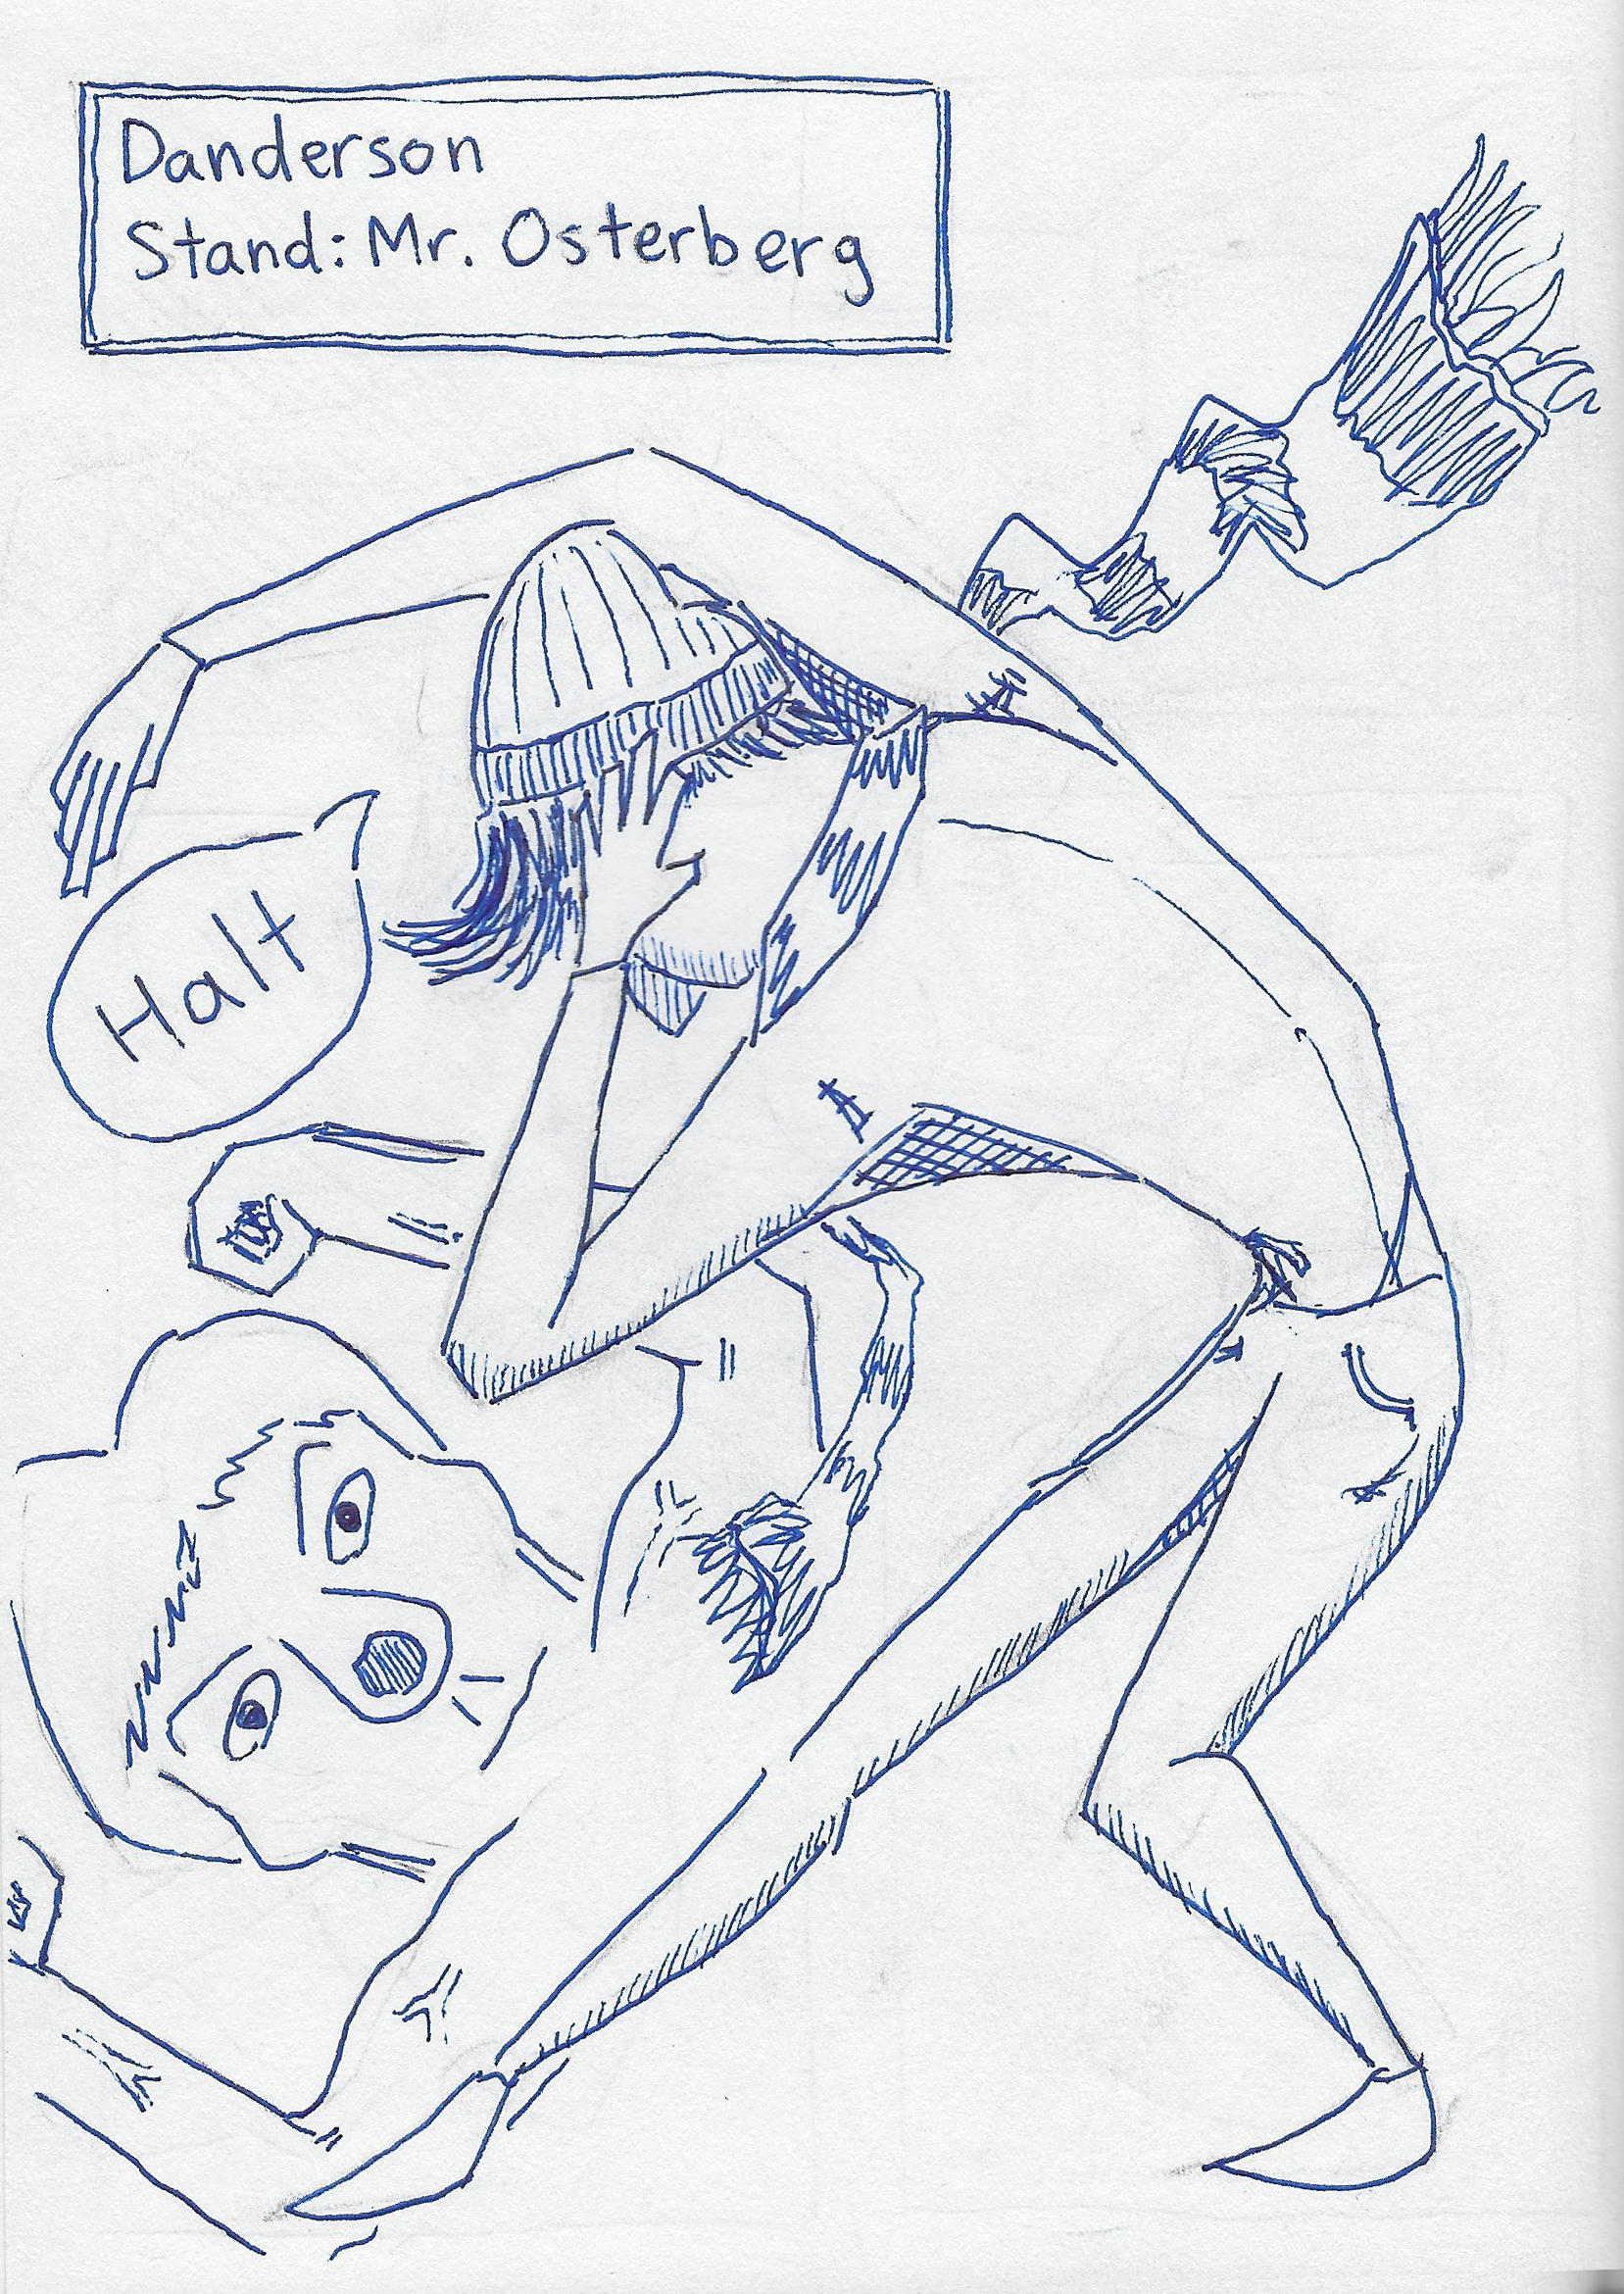 Danderson
Stand: Mr. Osterberg
Halt